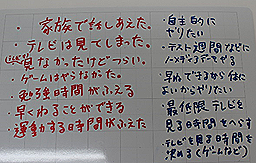 ・家族で話しあえた。
・テレビは見てしまった。
見なかったけどつらい。
・ゲームはやらなかった。
・勉強時間がふえる
・早くねることができる
・運動する時間がふえた
・自主的に
やりたい
・テスト週間などに
ノーメディアデーやる
・早ねできるから体に
よいからやりたい
・最低限テレビを
見る時間をへらす
・テレビを見る時間を
決める(ゲームなど)